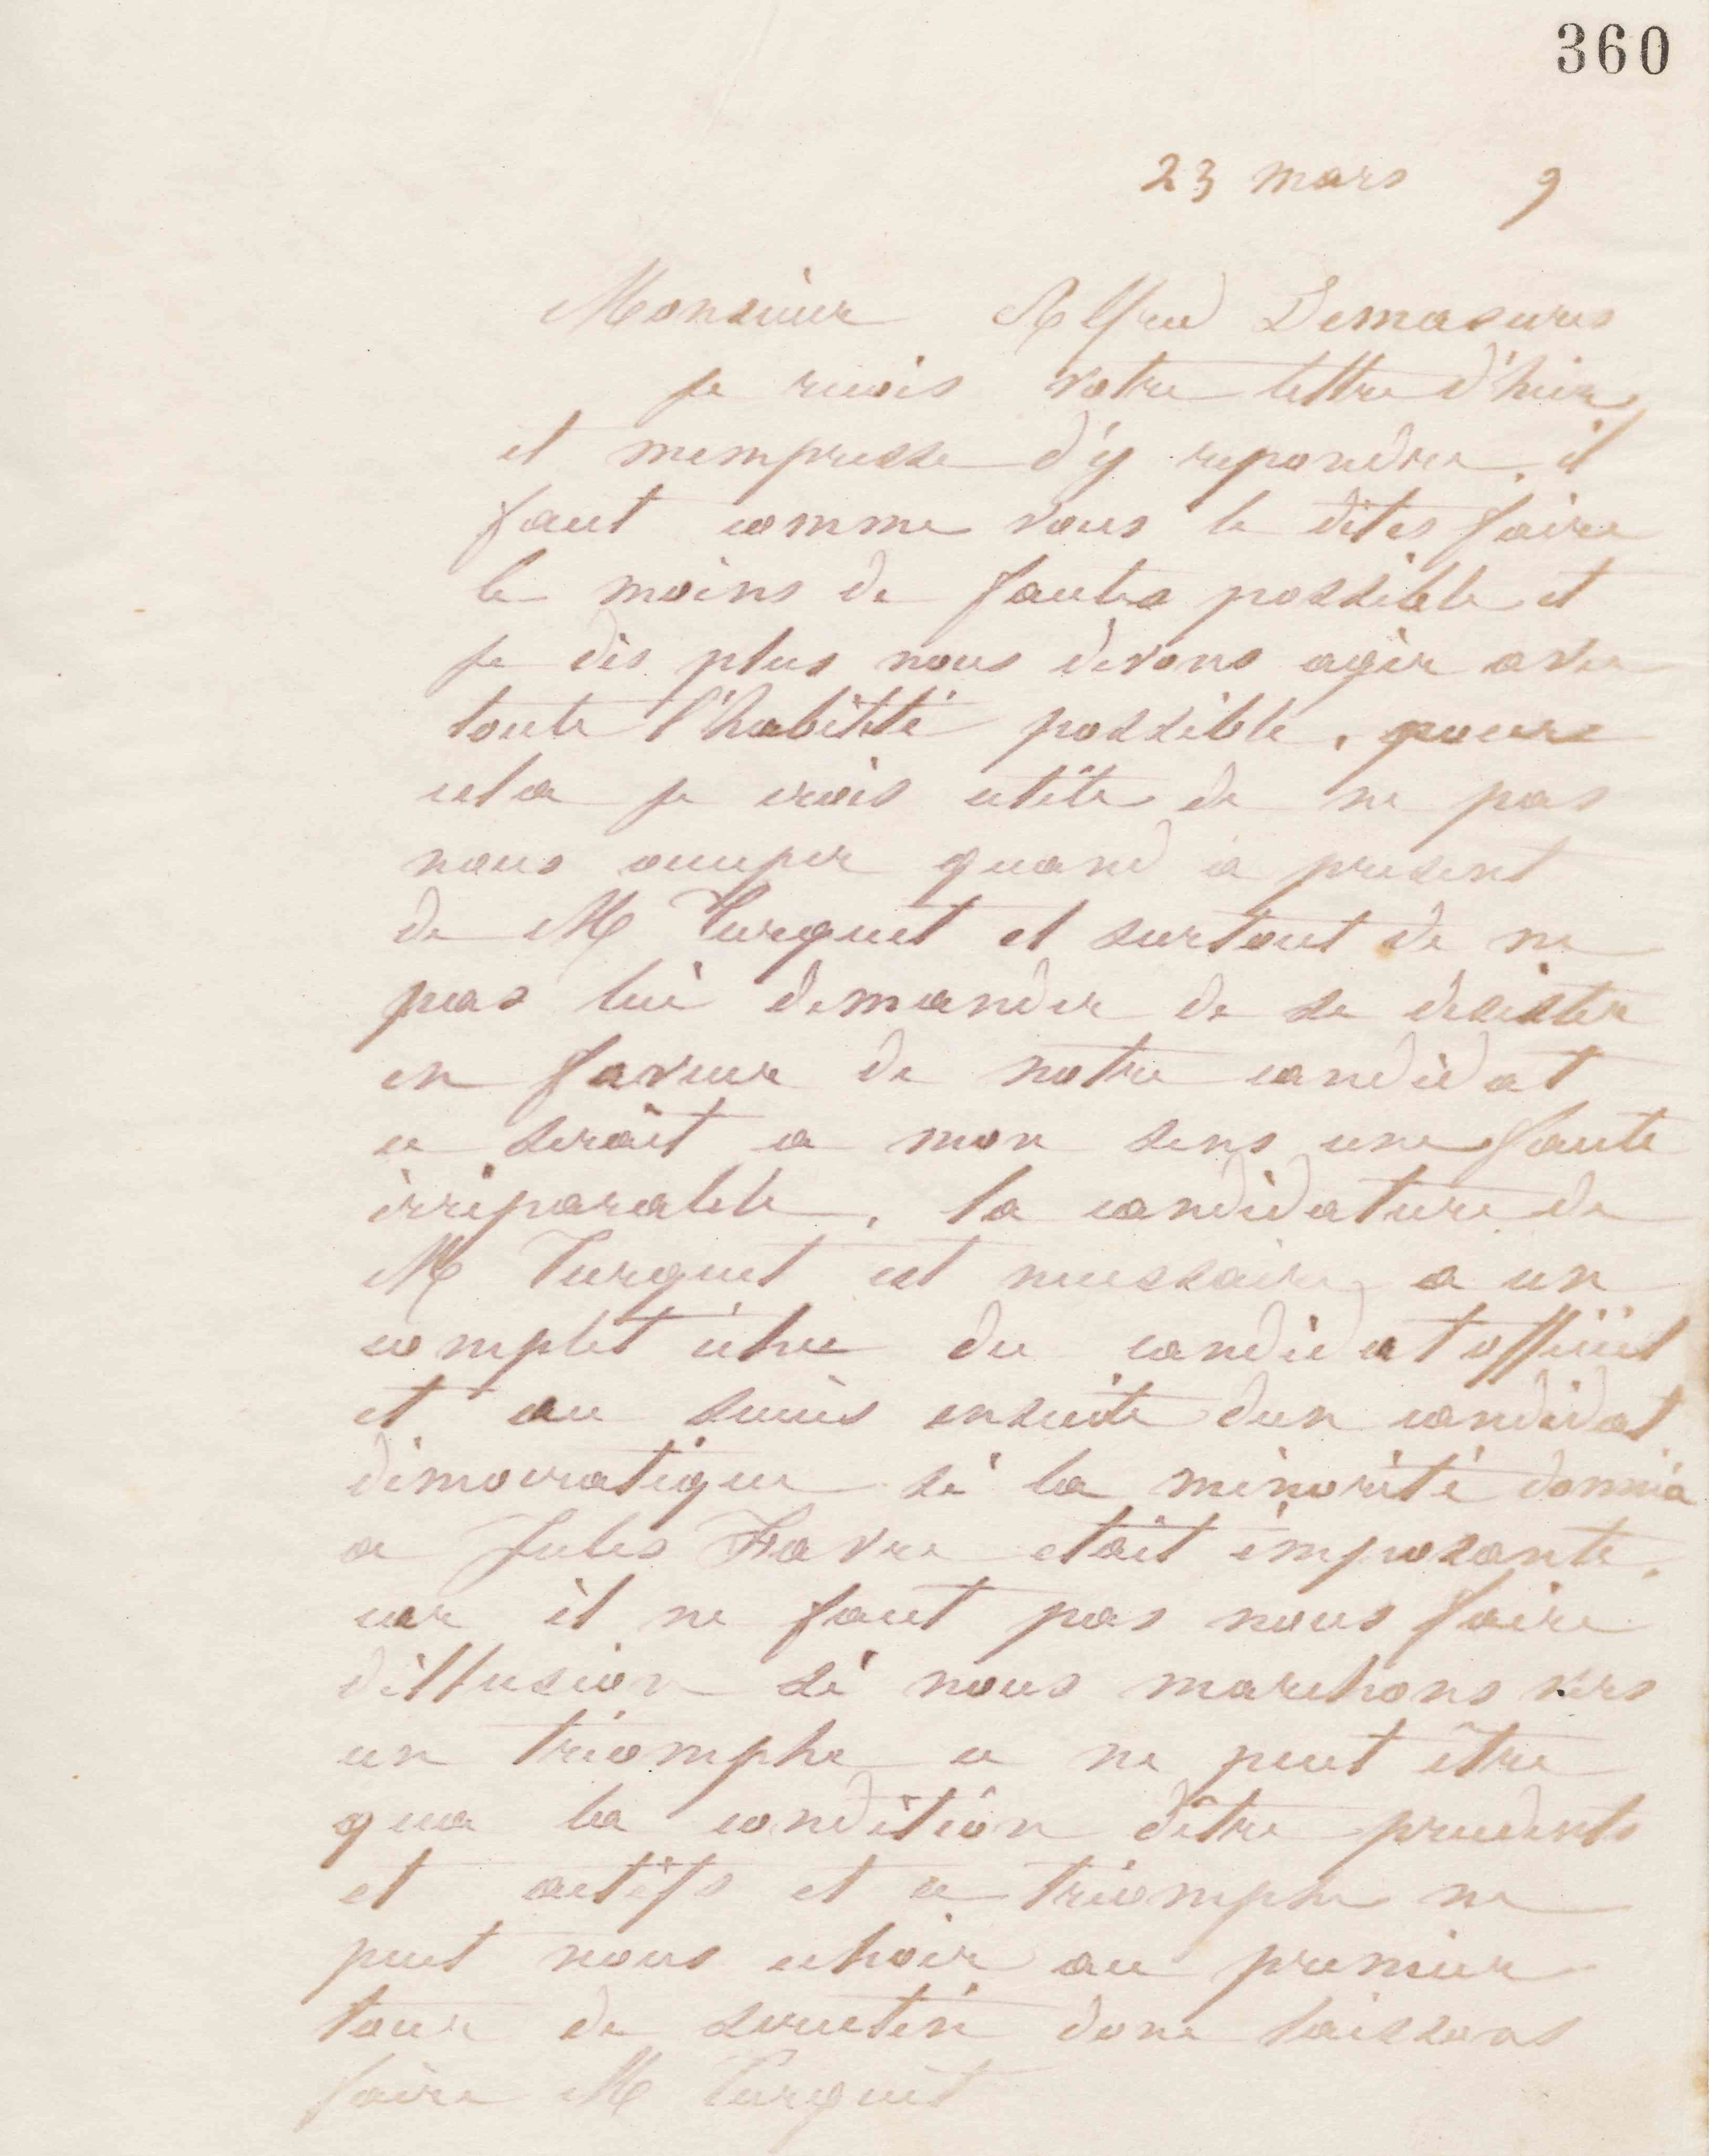 360
23 mars 9
Monsieur Alfred Demasures
je recois votre lettre d'hier
et mempresse d'y repondre, il
faut comme vous le dites faire
le moins de fautes possible et
je dis plus nous devons agir avec
toute l'habilité possible, pour
cela je crois utile de ne pas
nous occuper quand à present
de M Turquet et surtout de ne
pas lui demander de se desister
en faveur de notre candidat
ce serait a mon sens une faute
irréparable, la candidature de
M Turquet est necessaire a un
complet échec du candidat officiel
et au succès ensuite dun candidat
démocratique si la minorité donnée
a Jules Favre etait imposante,
car il ne faut pas nous faire
d'illusion si nous marchons vers
un triomphe ce ne peut être
qua la condition dêtre prudents
et actifs et ce triomphe ne
peut nous echoir au premier
tour de scrutin donc laissons
faire M Turquet